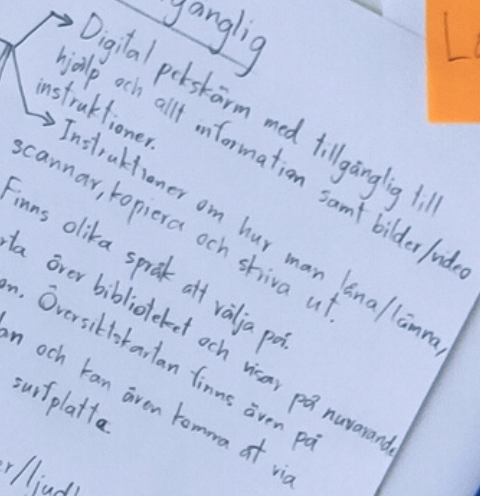 gänglig
Digital pekskärm med tillgänglig till
hjälp och allt information samt bilder/video
instruktioner.
Instruktioner om hur man låna/lämna,
scannar, kopiera och skriva ut.
Finns olika språk att välja på.
rta över biblioteket och visar på nuvarande
on. Översiktskartan finns även på
an och kan även komma åt via
surfplatta
er/ljud